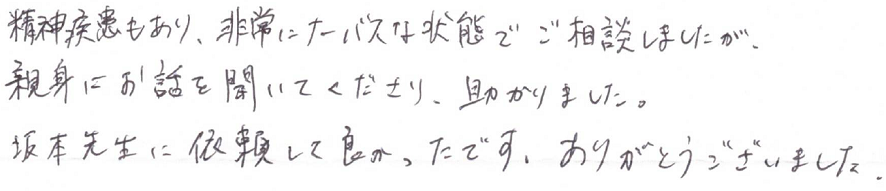 精神疾患もあり、非常にナーバスな状態でご相談しましたが、
親身にお話を聞いてくださり、助かりました。
坂本先生に依頼して良かったです。ありがとうございました.